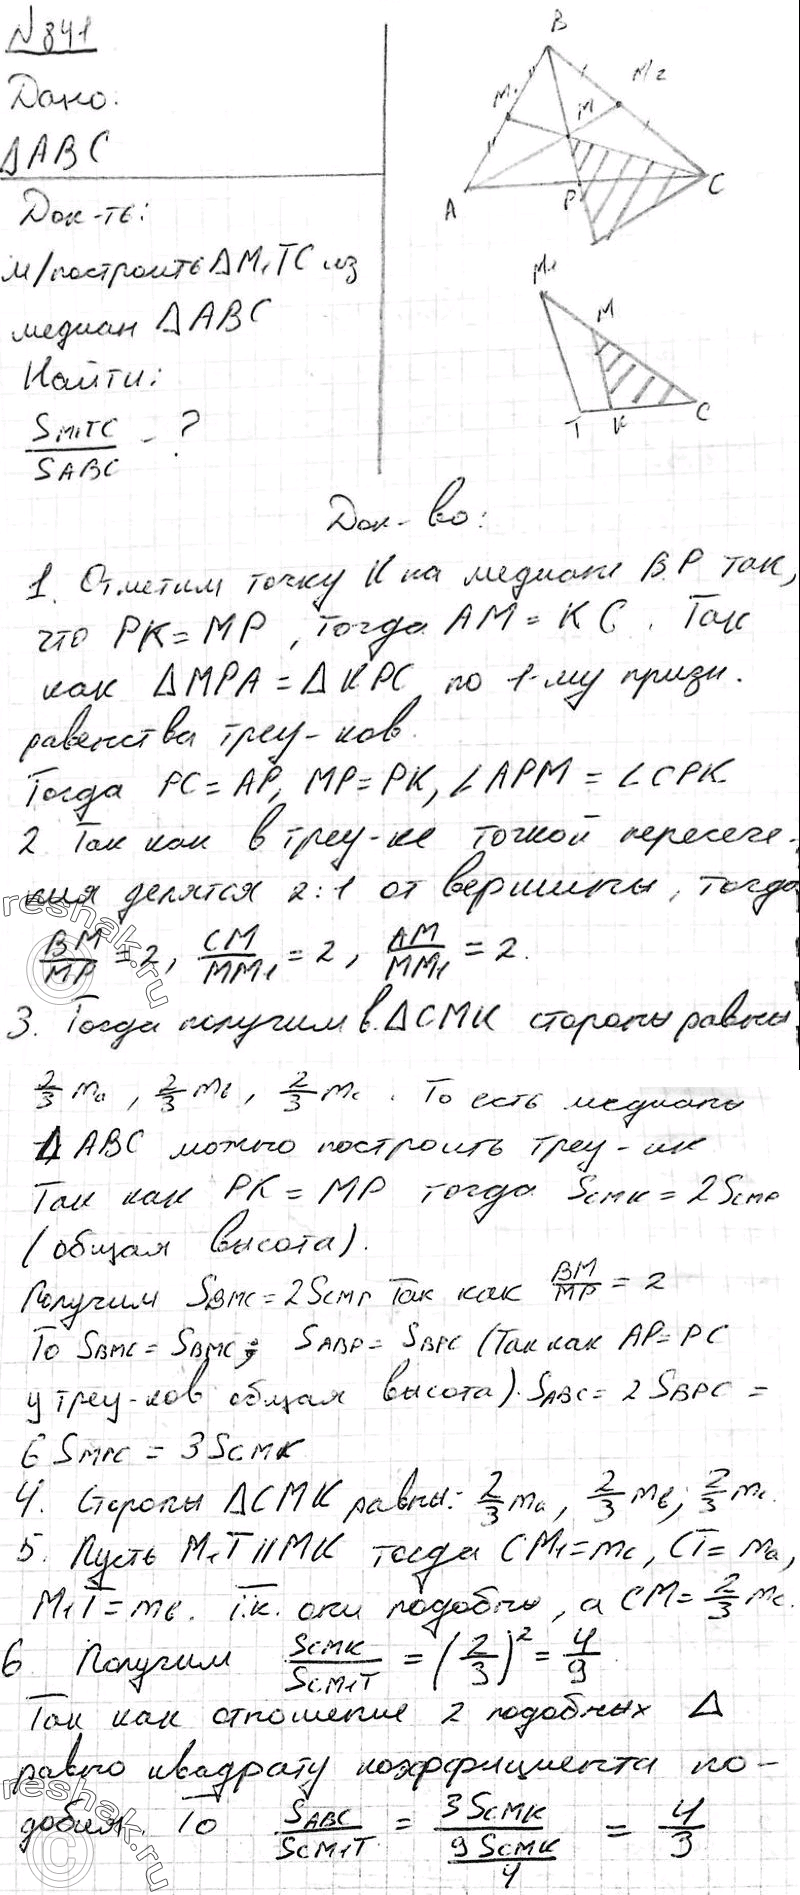 N841
Дано:
ΔABC
Док-ть:
м/построить ΔM₁TC из
медиан ΔABC
Найти:
SM₁TC/SABC - ?
B
M₁
M
M2
A
P
C
M₁
M
T
K
C
Док-во:
1. Отметим точку K на медиане BP так,
что PK = MP, тогда AM = KC. Так
как ΔMPA = ΔKPC по 1-му призн.
равенства треу-ков.
Тогда PC = AP, MP = PK, ∠APM = ∠CPK.
2 Так как в треу-ке точкой пересече-
ния делятся 2:1 от вершины, тогда
BM/MP = 2, CM/MM₁ = 2, AM/MM₁ = 2.
3. Тогда получим в ΔCMK стороны равны
2/3 ma, 2/3 mв, 2/3 mc. То есть медианы
ΔABC можно построить треу-ик
Так как PK = MP тогда SCMK = 2SCMP
(общая высота).
Получим SBMC = 2SCMP так как BM/MP = 2
То SBMC = SBMC; SABP = SBPC (Так как AP = PC
у треу-ков общая высота). SABC = 2SBPC =
6SMPC = 3SCMK
4. Стороны ΔCMK равны: 2/3 ma, 2/3 mв; 2/3 mc.
5. Пусть M₁T || MK тогда CM₁ = mc, CT = ma,
M₁T = mв. т.к. они подобны, а CM = 2/3 mc.
6 Получим SCMK/SCM₁T = (2/3)² = 4/9
Так как отношение 2 подобных Δ
равно квадрату коэффициента по-
добия. То SABC/SCM₁T = 3SCMK/(9SCMK/4) = 4/3
reshak.ru
reshak.ru